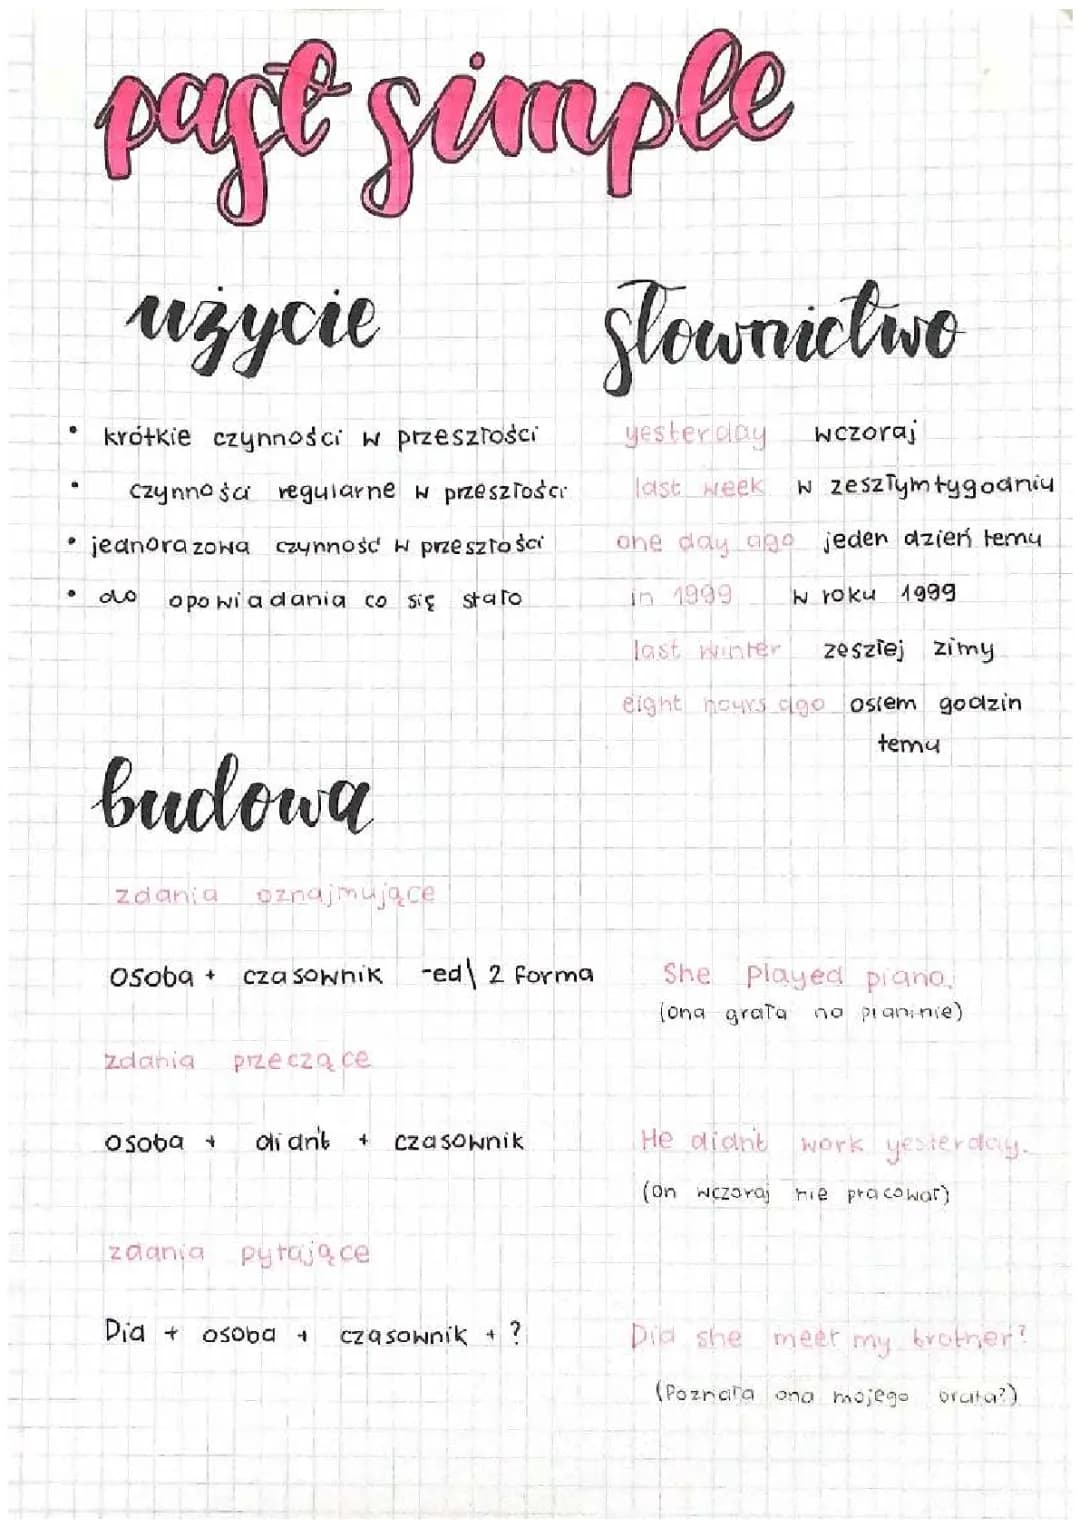 past simple
użycie
• krótkie czynności w przeszłości
• czynności regularne w przeszłości
• jednorazowa czynność w przeszłości
• do opowiadania co się stało
słownictwo
yesterday wczoraj
last week w zeszłym tygodniu
one day ago jeden dzień temu
in 1999 w roku 1999
last winter zeszłej zimy
eight hours ago osiem godzin
temu
budowa
zdania oznajmujące
osoba + czasownik -ed\ 2 forma
She played piano.
(ona grała na pianinie)
zdania przeczące
osoba + didn't + czasownik
He didn't work yesterday.
(on wczoraj nie pracował)
zdania pytające
Did + osoba + czasownik + ?
Did she meet my brother?
(Poznała ona mojego brata?)